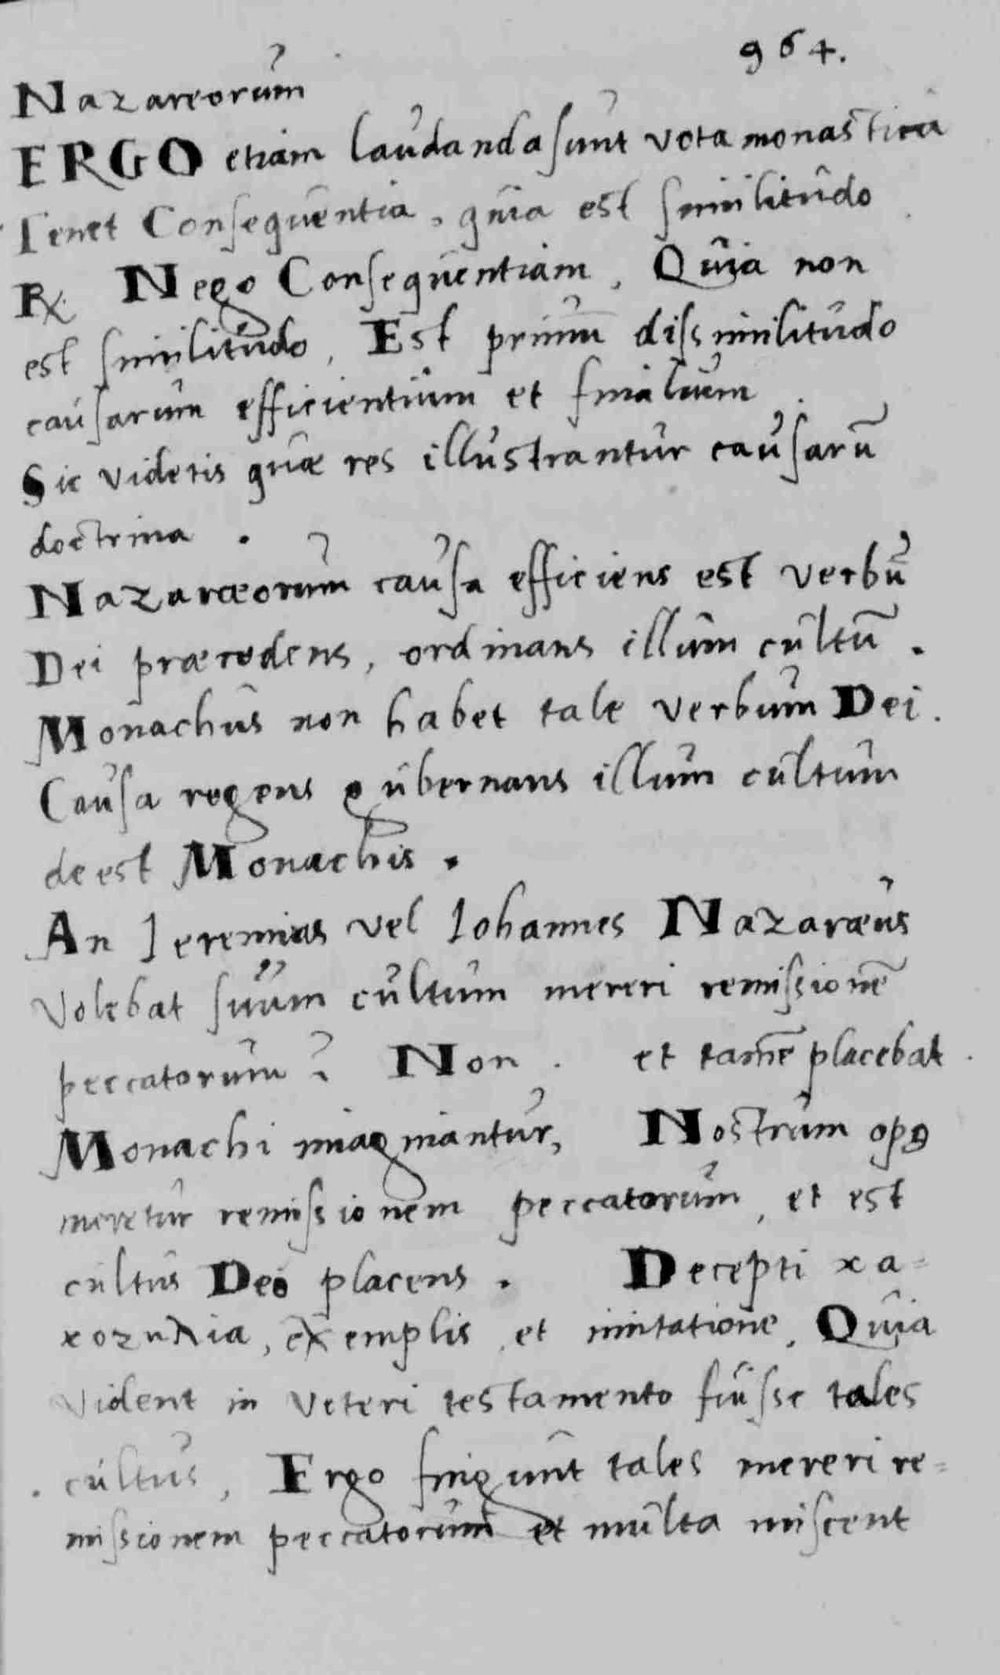 964.
Nazareorum
ERGO etiam laudanda sunt vota monastica
Tenet Consequentia, quia est similitudo
℞ Nego Consequentiam, Quia non
est similitudo, Est primū dissimilitudo
causarum efficientium et finalium
Sic videtis quæ res illustrantur causarū
doctrina.
Nazaræorum causa efficiens est verbū
Dei præcedens, ordinans illum cultū.
Monachus non habet tale verbum Dei.
Causa regens gubernans illum cultum
deest Monachis.
An Jeremias vel Iohannes Nazaræus
Volebat suum cultum mereri remissionē
peccatorum? Non. et tamē placebat.
Monachi imaginantur, Nostrum opꝰ
meretur remissionem peccatorum, et est
cultus Deo placens. Decepti κα=
κοζηλια, exemplis et imitatione, Quia
Vident in Veteri testamento fuisse tales
cultus, Ergo fingunt tales mereri re=
missionem peccatorum et multa miscent